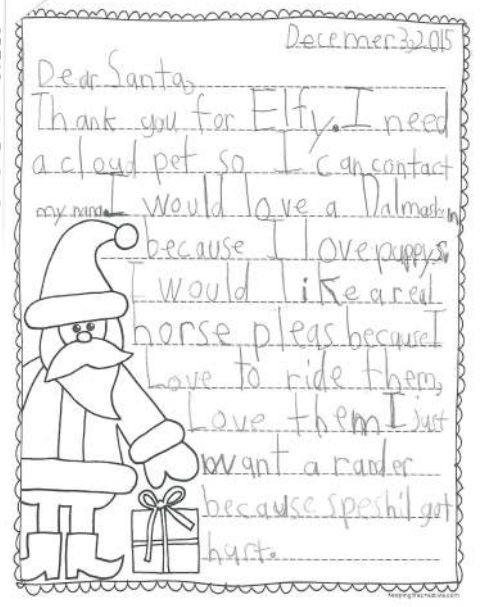 Decemer 3, 2015
Dear Santa,
Thank you for Elfy. I need
a cloud pet so I can contact
my nana I would love a Dalmashin
because I love puppys
I would like a real
horse pleas because I
Love to ride them,
Love them I just
want a rander
because speshil got
hurt.